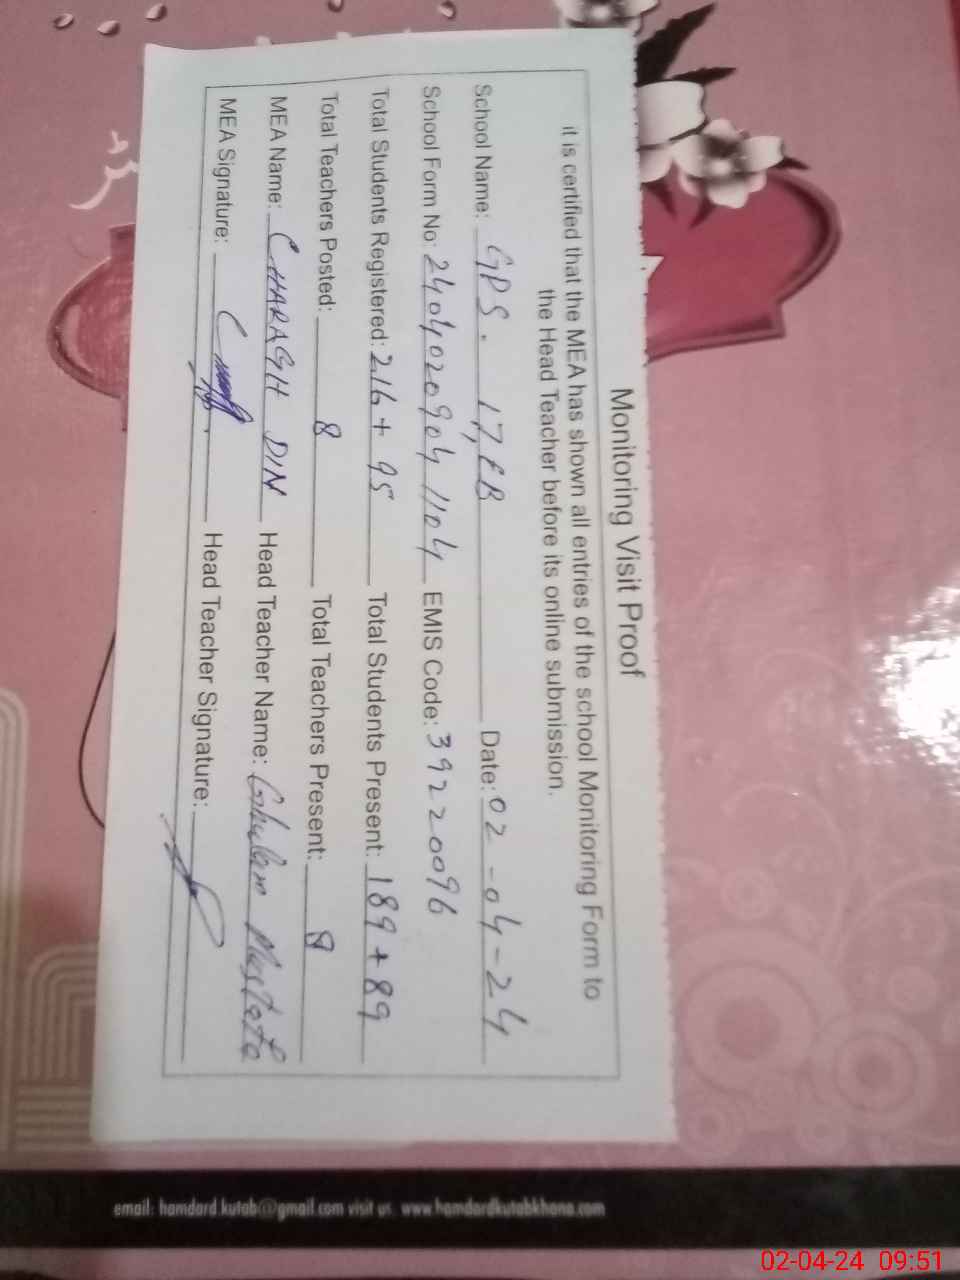 Monitoring Visit Proof
it is certified that the MEA has shown all entries of the school Monitoring Form to
the Head Teacher before its online submission.
School Name: GPS. 17, EB Date: 02-04-24
School Form No: 2404020904 1104 EMIS Code: 39220096
Total Students Registered: 216 + 95 Total Students Present: 189 + 89
Total Teachers Posted: 8 Total Teachers Present: 8
MEA Name: CHARAGH DIN Head Teacher Name: Ghulam Mustafa
MEA Signature: Head Teacher Signature:
email: hamdard.kutab@gmail.com visit us. www.hamdardkutabkhana.com
02-04-24 09:51